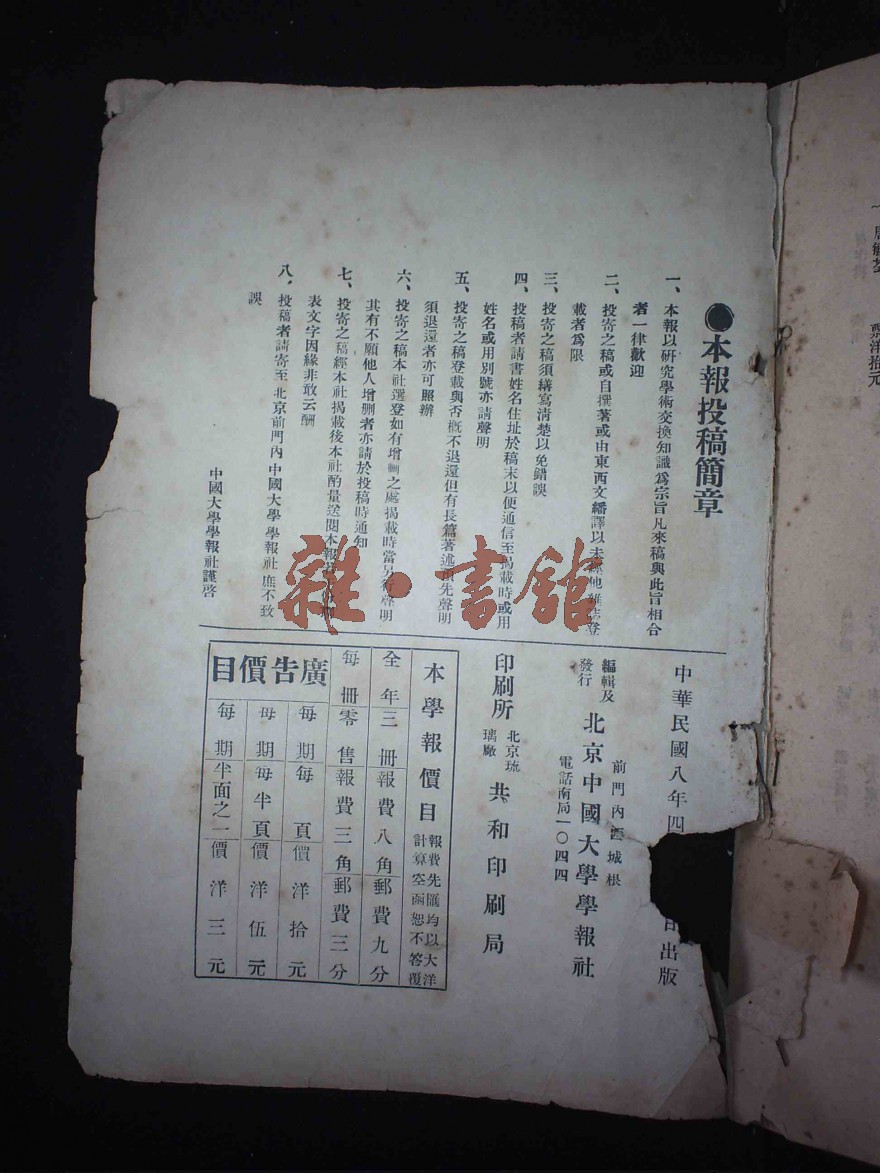 ●本報投稿簡章
一、本報以研究學術交換知識爲宗旨凡來稿與此旨相合
者一律歡迎
二、投寄之稿或自撰著或由東西文繙譯以未經他雜誌登
載者爲限
三、投寄之稿須繕寫清楚以免錯誤
四、投稿者請書姓名住址於稿末以便通信至揭載時或用
姓名或用別號亦請聲明
五、投寄之稿登載與否概不退還但有長篇著述預先聲明
須退還者亦可照辦
六、投寄之稿本社選登如有增刪之處揭載時當另行聲明
其有不願他人增刪者亦請於投稿時通知
七、投寄之稿經本社揭載後本社酌量送閱本報
表文字因緣非敢云酬
八、投稿者請寄至北京前門內中國大學學報社庶不致
誤
中國大學學報社謹啓
中華民國八年四 日出版
編輯及發行
前門內西城根
北京中國大學學報社
電話南局一〇四四
印刷所
北京琉璃廠
共和印刷局
本學報價目
報費先匯均以大洋
計算空函恕不答覆
全年三冊報費八角郵費九分
每冊零售報費三角郵費三分
廣告價目
每期每頁價洋拾元
每期每半頁價洋伍元
每期半面之一價洋三元
票洋拾元
雜·書館